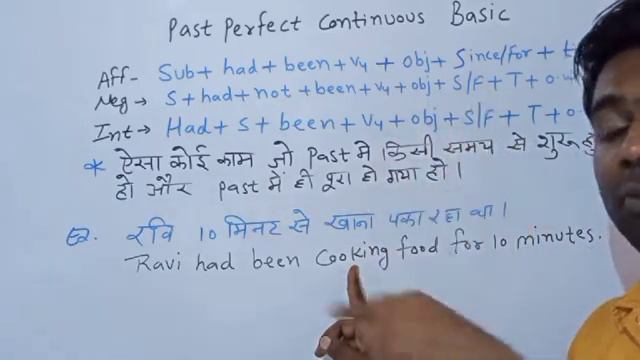 Past Perfect Continuous Basic
Aff- Sub + had + been + V4 + obj + Since/for +
Neg → S + had + not + been + V4 + obj + S/F + T + o.w
Int → Had + S + been + V4 + obj + S/F + T + o
* ऐसा कोई काम जो Past मे किसी समय से शुरू
हो और past में ही पूरा हो गया हो।
Ex. रवि 10 मिनट से खाना पका रहा था।
Ravi had been cooking food for 10 minutes.